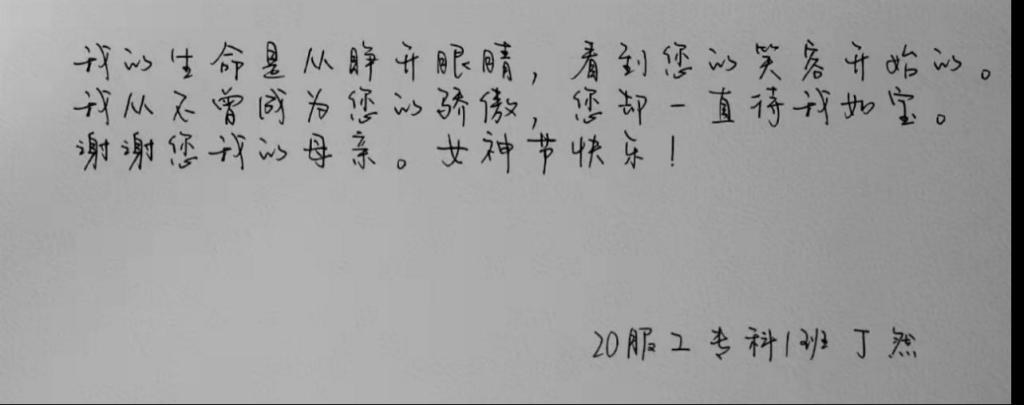 我的生命是从睁开眼睛，看到您的笑容开始的。
我从不曾成为您的骄傲，您却一直待我如宝。
谢谢您我的母亲。女神节快乐！
20服工专科1班 丁然